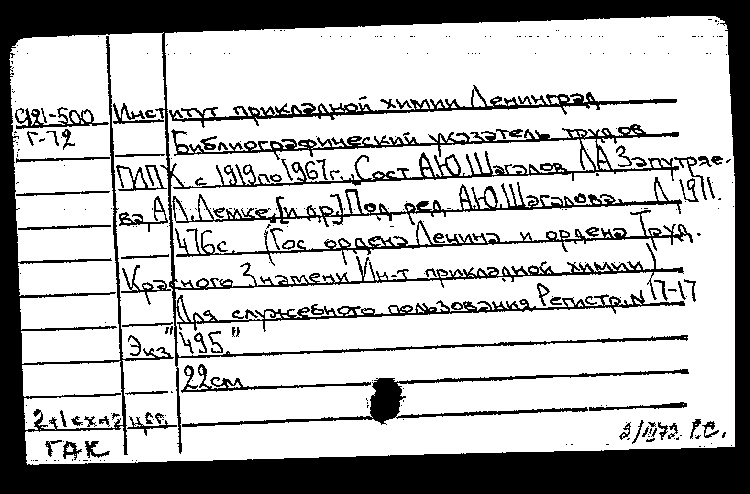 С921-500 Институт прикладной химии Ленинград
Г-72 Библиографический указатель трудов
ГИПХ с 1919 по 1967г. Сост А.Ю.Шагалов, Л.А.Запутряе-
ва, А.Л.Лемке, [и др] Под. ред. А.Ю.Шагалова. Л, 1971.
476с. (Гос ордена Ленина и ордена Труд.
Красного Знамени Ин-т прикладной химии)
Для служебного пользования. Регистр. N 17-17
Экз "495."
22см
ГАК 2/III72 Р.С.